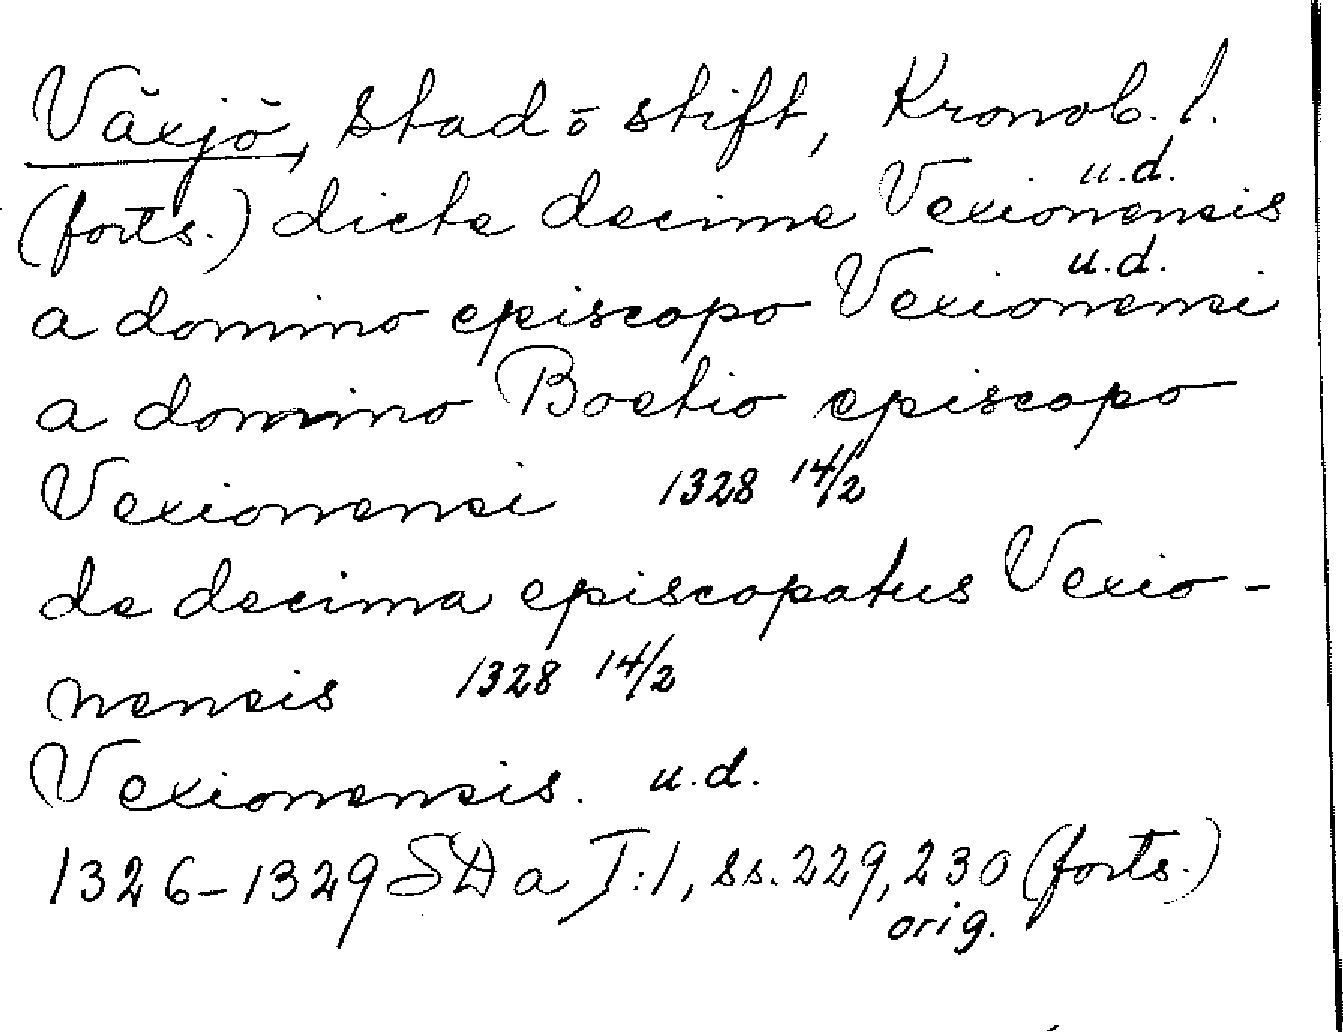 Växjö, stad o stift, Kronob. l.
(forts.) dicte decime Vexionensis u.d.
a domino episcopo Vexionensi u.d.
a domino Boetio episcopo
Vexionensi 1328 14/2
de decima episcopatus Vexio-
nensis 1328 14/2
Vexionensis. u.d.
1326-1329 SDa I:1, ss. 229, 230 (forts.)
orig.